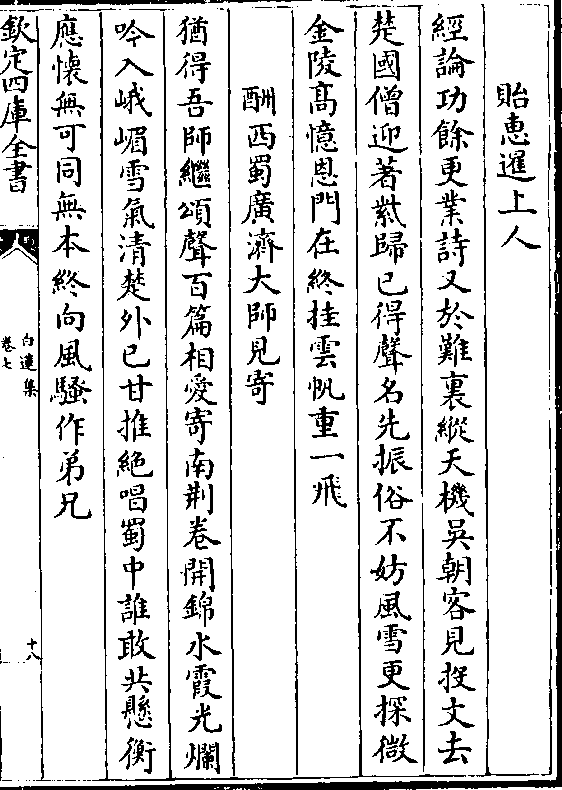 貽惠暹上人
經論功餘更業詩又於難裏縱天機吳朝客見投文去
楚國僧迎著紫歸已得聲名先振俗不妨風雪更探微
金陵髙憶恩門在終挂雲帆重一飛
酬西蜀廣濟大師見寄
猶得吾師繼頌聲百篇相愛寄南荆卷開錦水霞光爛
吟入峨嵋雪氣清楚外已甘推絶唱蜀中誰敢共懸衡
應懷無可同無本終向風騷作弟兄
欽定四庫全書
白蓮集
卷七
十八